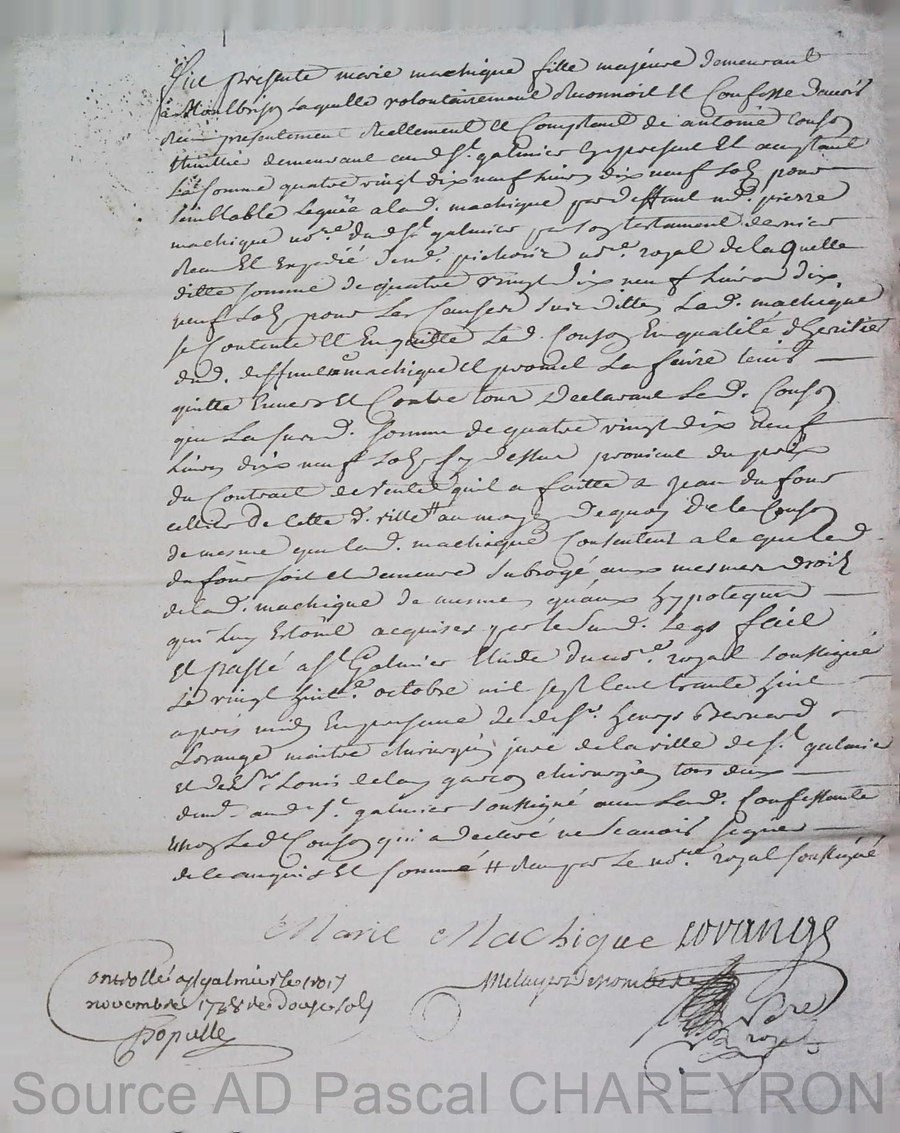 Fut présente marie machique fille majeure demeurant
a Montbrison Laquelle volontairement Reconnoit Et Confesse d'avoir
Receu presentement Reellement Et Comptant de antoine Couson
thuillier demeurant aud. St. galmier Cy present Et aceptant
La somme quatre vingt dix neuf Livres dix neuf sols pour
semblable Leguée a lad. machique par deffunt md. pierre
machique nore. dud. St. galmier par son testament dernier
Receu Et Expedié nore. royal de laquelle
ditte somme de quatre vingt dix neuf Livres dix
neuf sols pour Les Causes susdittes La d. machique
se Contente Et En quitte Led. Couson En qualité d'heritier
dud. deffunt machique Et promet La faire tenir
quitte Envers Et Contre tous Declarant Led. Couson
que La susd. somme de quatre vingt dix neuf
Livres dix neuf sols Cy dessus provient du prix
du Contract de vente qu'il a faitte a Jean du four
cellier de Cette d. ville au moyen de quoy Led. Couson
de mesme que lad. machique Consentent a ce que led.
du four soit et demeure subrogé aux mesmes droits
de lad. machique de mesme qu'aux hypoteques
qui Luy Estoint acquises par le susd. Legs fait
Et passé a St Galmier Etude du nore. royal soussigné
Le vingt huite. octobre mil sept Cent trante huit
apres midy En presence de Sr. henry Bernard
Lorange maitre chirurgien juré de la ville de St. galmier
et de Sr. Louis delay garçon chirurgien tous deux
demt. aud. St. galmier soussigné avec Lad. Confessante
non Led. Couson qui a declaré ne scavoir signer
de ce enquis Et sommé # par Le nore. royal soussigné
Marie Machique Lorange
ontrollé a St galmier le trois
novembre 1738 Rec douze sols
Populle
royal
Source AD Pascal CHAREYRON